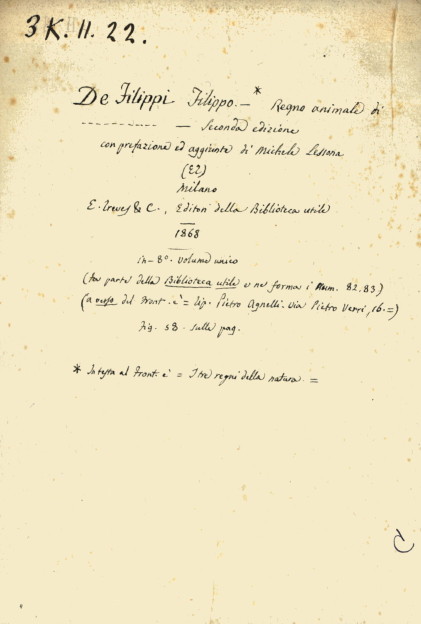 3 K. II. 22.
De Filippi Filippo. — * Regno animale di
— Seconda edizione
con prefazione ed aggiunte di Michele Lessona
(E2)
Milano
E. Treves & C., Editori della Biblioteca utile
1868
in-8°. volume unico
(fa parte della Biblioteca utile e ne forma i Num. 82.83)
(a verso del front. è = Tip. Pietro Agnelli. via Pietro Verri, 16. =)
Fig. 58. sulle pag.
* In testa al front. è = I tre regni della natura. =